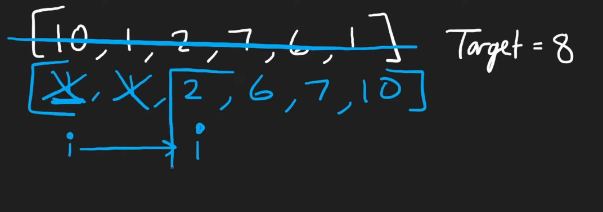 [10, 1, 2, 7, 6, 1] Target = 8
[1, 1, 2, 6, 7, 10]
i i